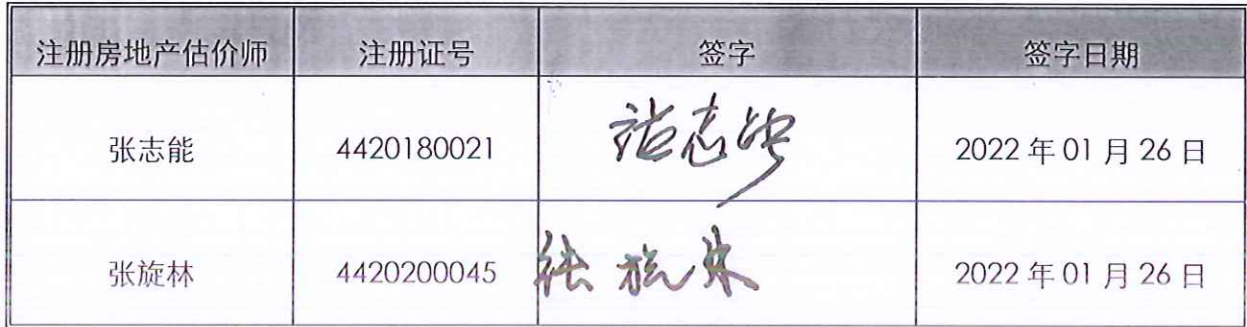 注册房地产估价师 注册证号 签字 签字日期
张志能 4420180021 张志能 2022 年 01 月 26 日
张旋林 4420200045 张旋林 2022 年 01 月 26 日